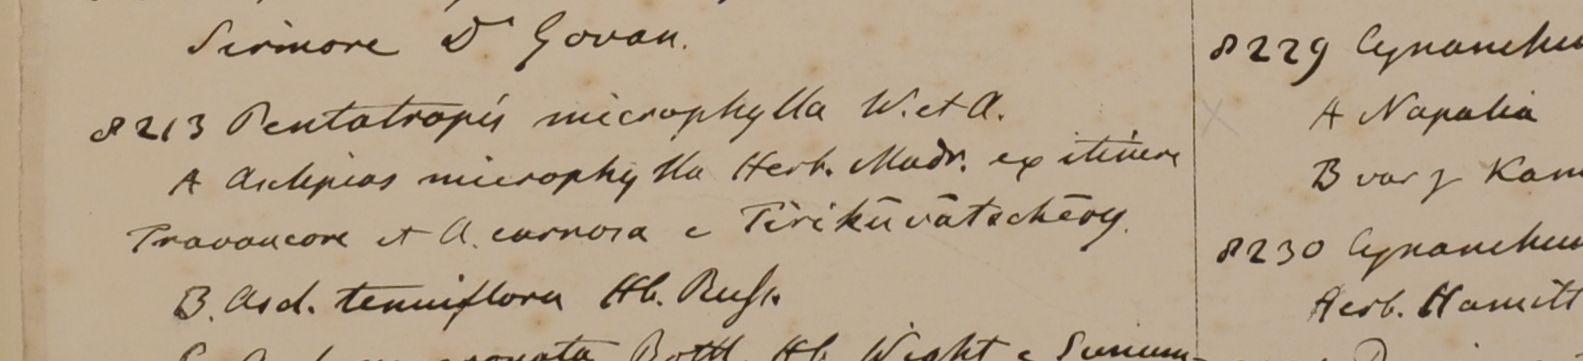 Sirmore Dr Govan.
8213 Pentatropis microphylla W. et A.
A Asclepias microphylla Herb. Madr. ex itinere
Travancore et A. carnosa e Tirikūvātschēry.
B. Ascl. tenuiflora Hb. Russ.
Rottl. Hb. Wight e
8229 Cynanchu
A Napalia
B var γ Kam
8230 Cynanchu
Herb. Hamilt